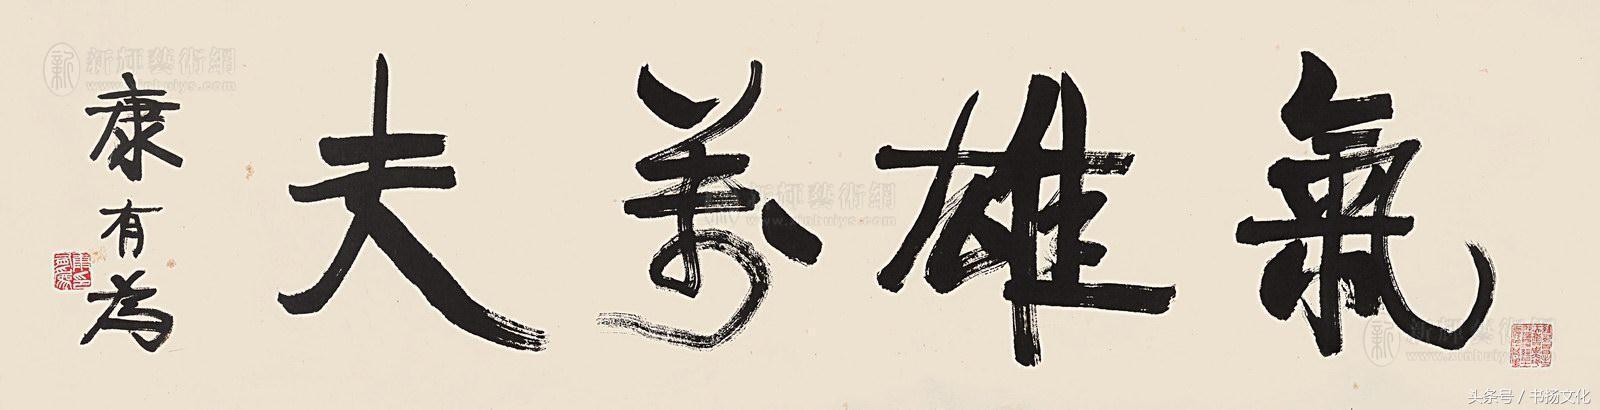 氣雄萬夫
康有為
新輝藝術網
www.xinhuiys.com
头条号 / 书扬文化